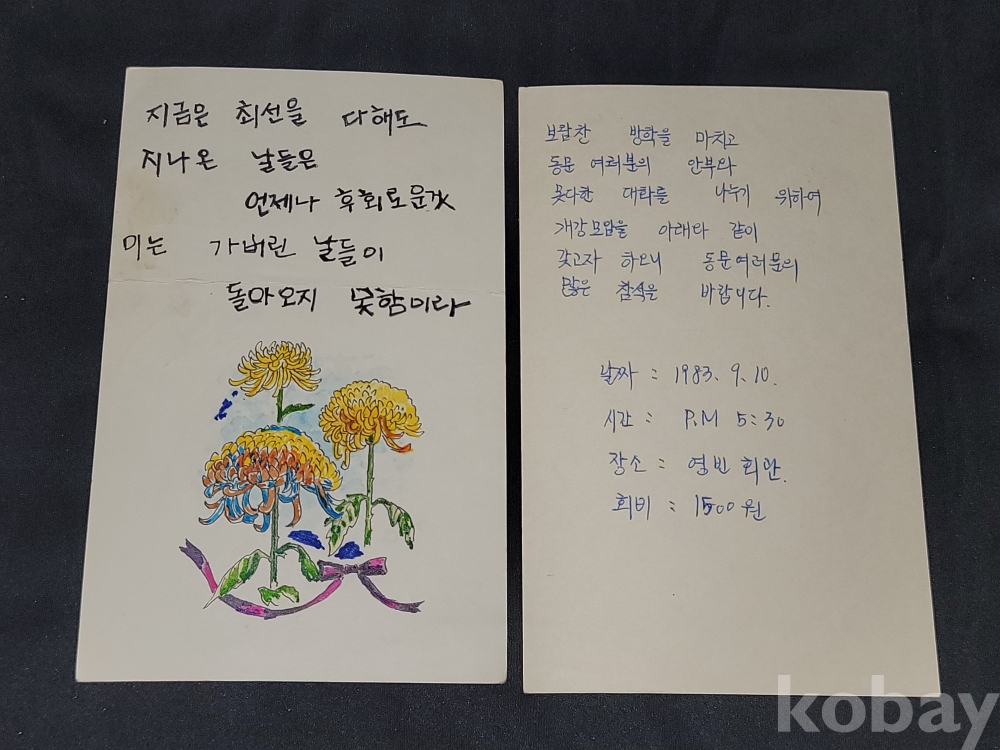 지금은 최선을 다해도
지나온 날들은
언제나 후회로운것
이는 가버린 날들이
돌아오지 못함이라
보람찬 방학을 마치고
동문 여러분의 안부와
못다한 대화를 나누기 위하여
개강모임을 아래와 같이
갖고자 하오니 동문여러분의
많은 참석을 바랍니다.
날짜 : 1983. 9. 10.
시간 : P.M 5:30
장소 : 영빈 회관.
회비 : 1500원
kobay